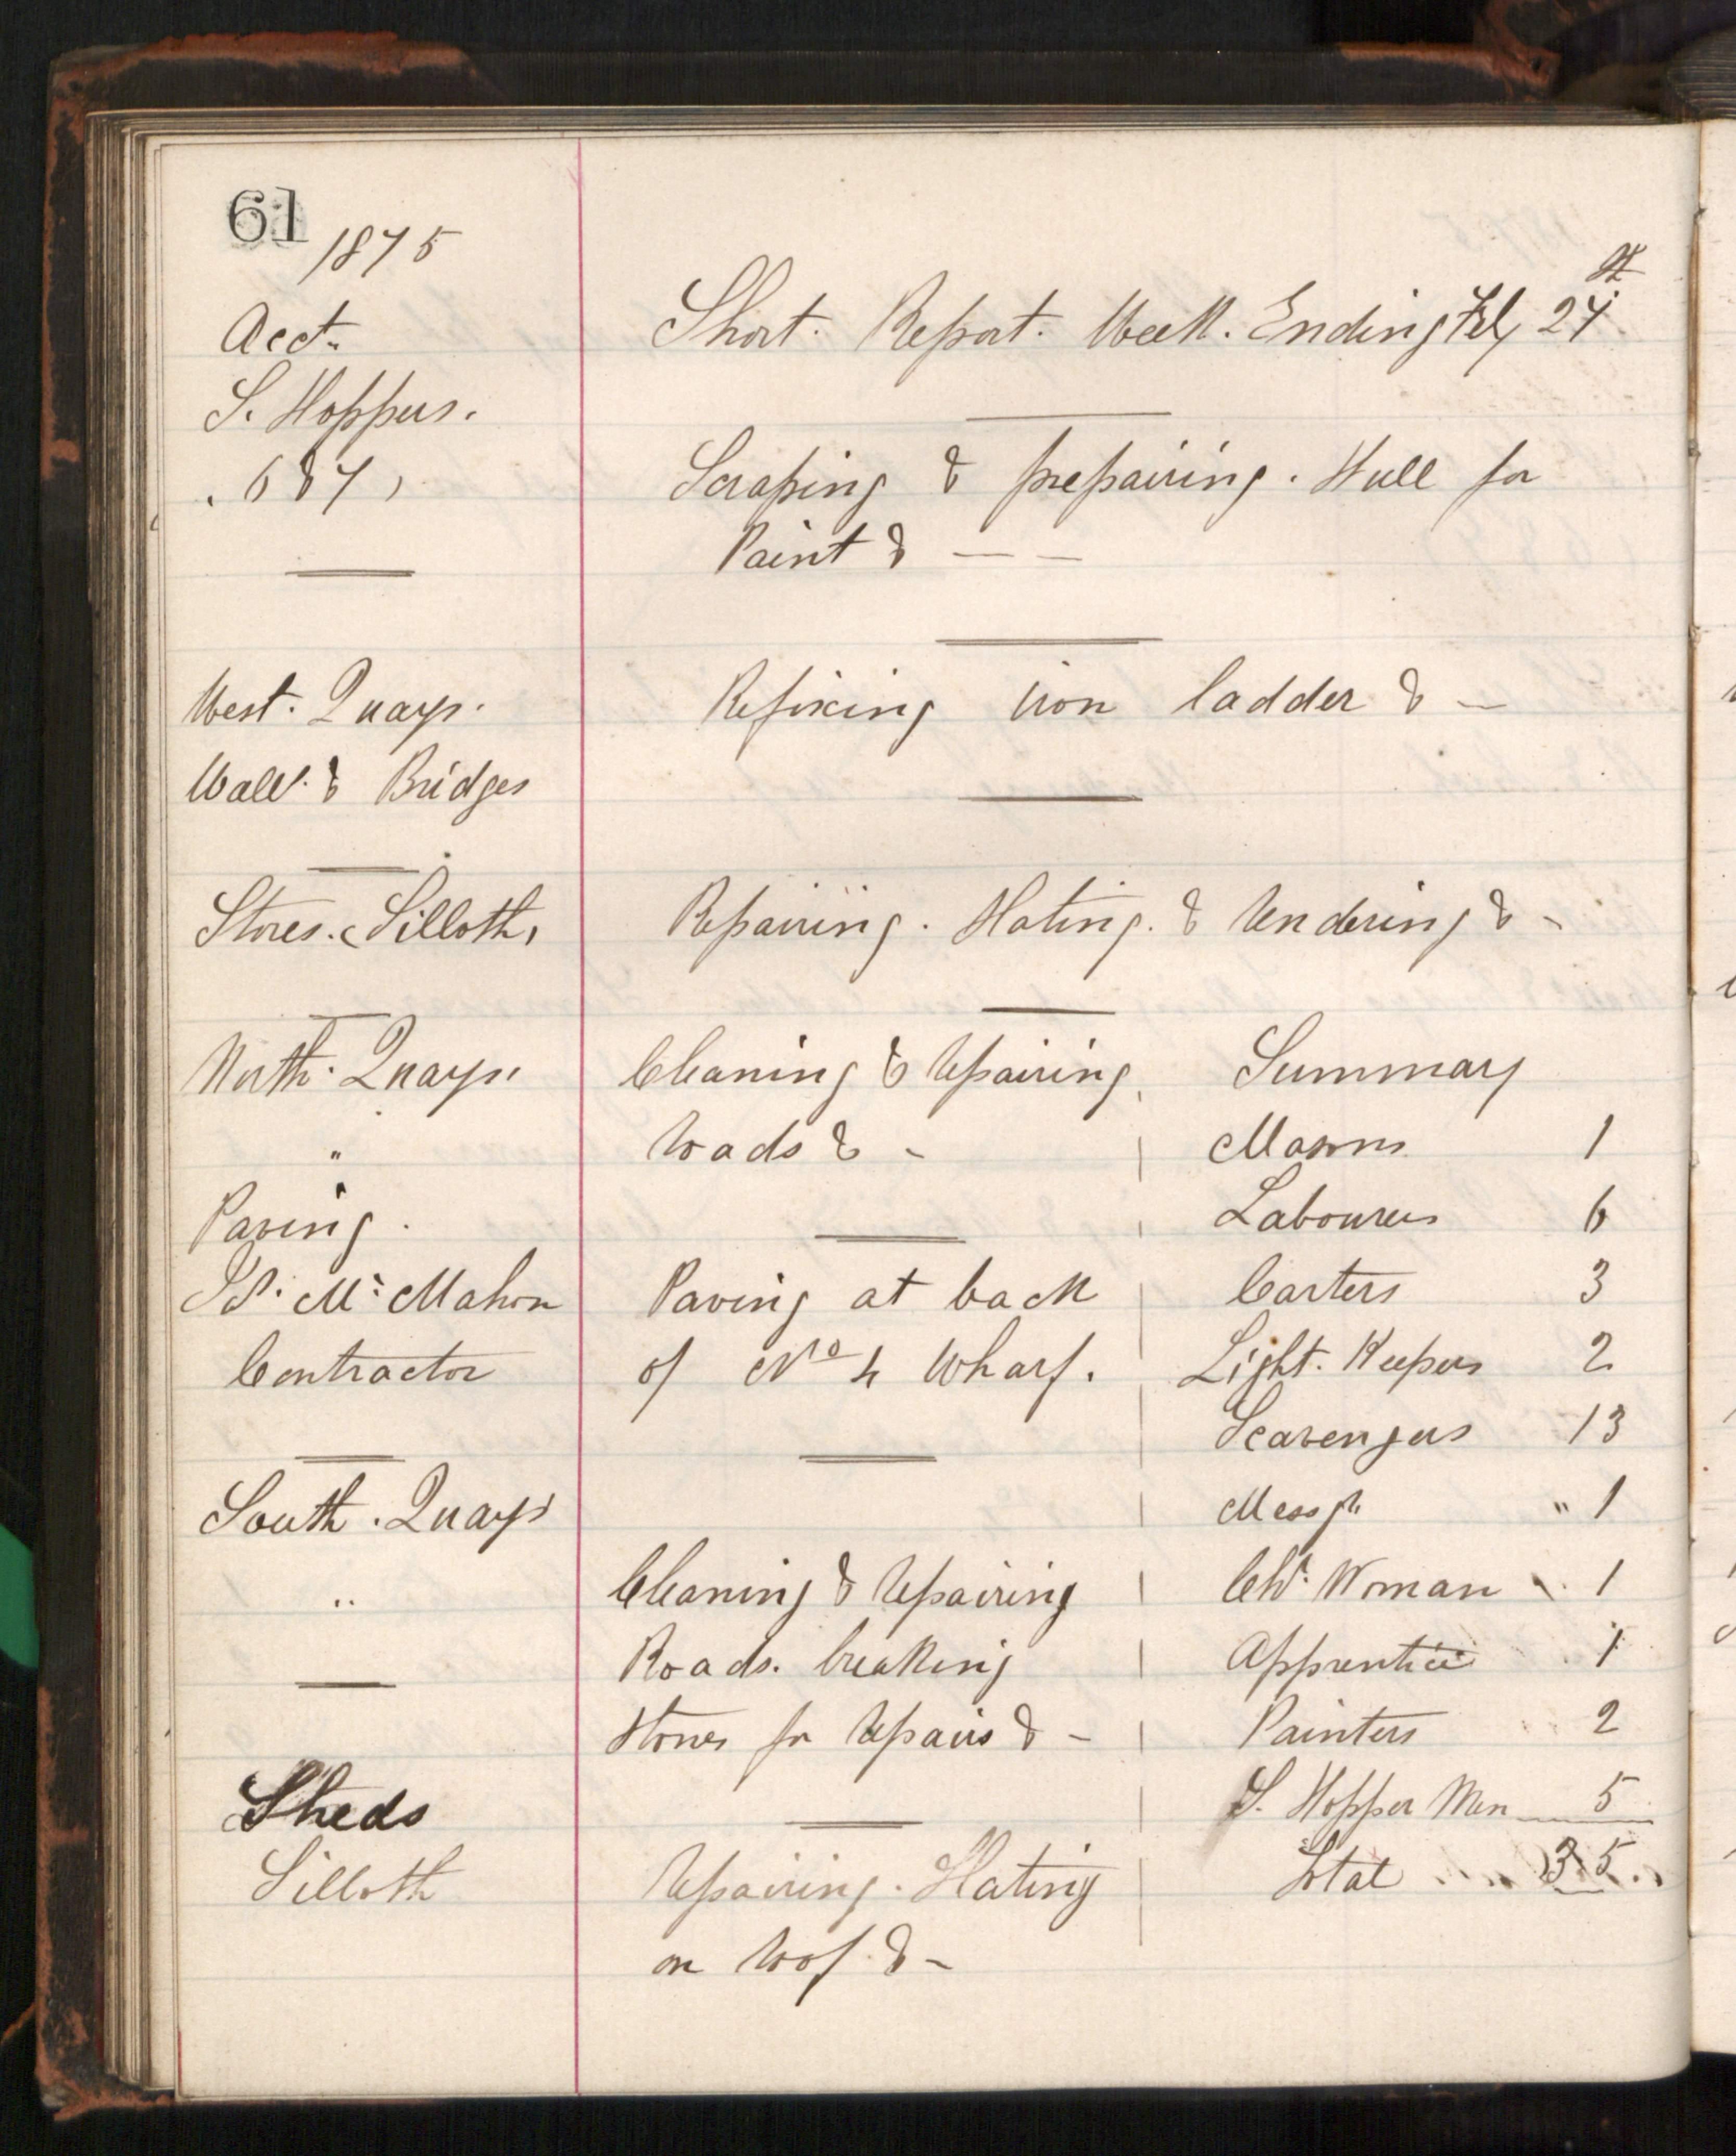 61
1875
Acct.
Short. Report. Week. Ending Feby 27th
S. Hoppers.
. 6 & 7 ,
Scraping & prepairing. Hull for
Paint & — —
West. Quays.
Refixing iron ladder & —
Wall. & Bridges
Stores. Silloth,
Repairing. Slating. & rendering & -
North. Quays.
Cleaning & repairing,
roads & -
"
Paving.
P. Mc Mahon
Contractor
Paving at back
of No 4 Wharf.
South. Quays
"
Cleaning & repairing
Roads. breaking
stones for repairs & -
Sheds
Silloth
repairing. Slating
on roof. & -
Summary
Masons 1
Labourers 6
Carters 3
Light. Keepers 2
Scavengers 13
Messgr " 1
Ch. Woman 1
Apprentice 1
Painters 2
S. Hopper Men 5
Total 35